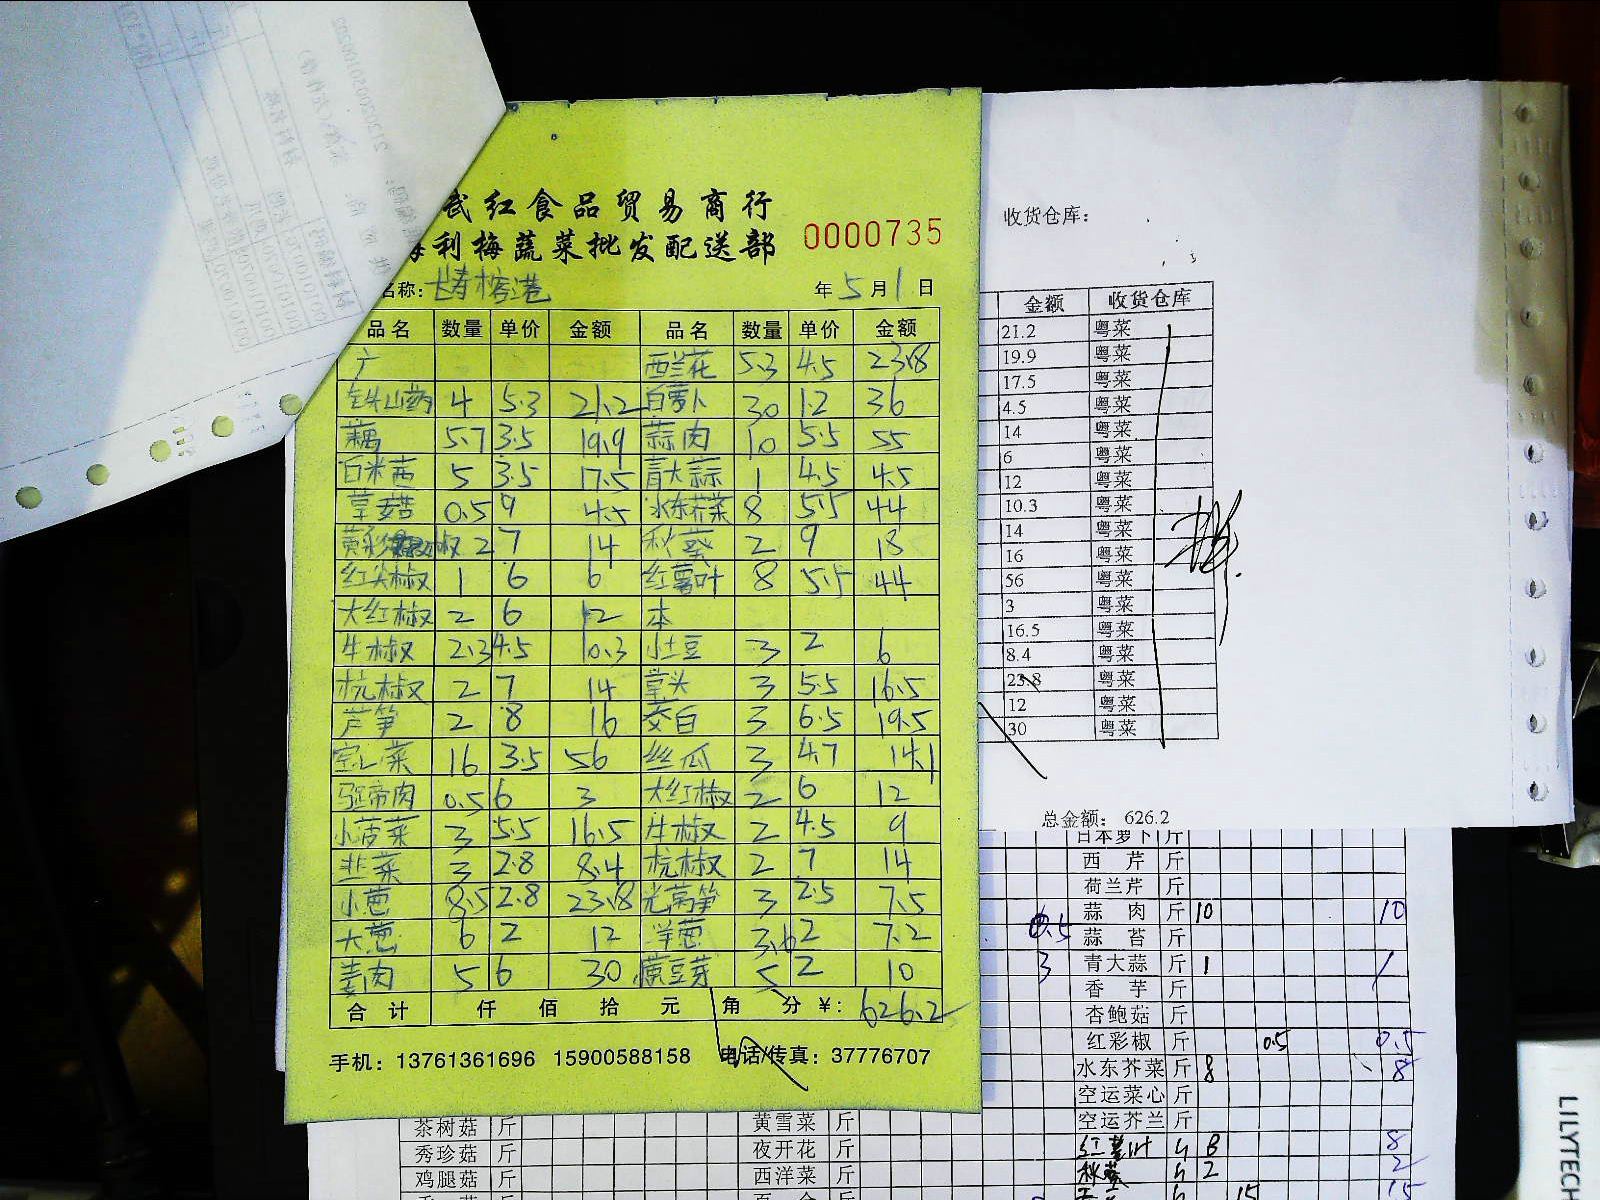 武红食品贸易商行
海利梅蔬菜批发配送部 0000735
名称: 长寿榕港 年5月1日
品名 数量 单价 金额 品名 数量 单价 金额
广 西兰花 5.3 4.5 23.8
铁头山药 4 5.3 21.2 白萝卜 30 1.2 36
藕 5.7 3.5 19.9 蒜肉 10 5.5 55
百米茜 5 3.5 17.5 青大蒜 1 4.5 4.5
草菇 0.5 9 4.5 水东芥菜 8 5.5 44
黄彩椒 2 7 14 秋葵 2 9 18
红尖椒 1 6 6 红薯叶 8 5.5 44
大红椒 2 6 12 本
牛椒 2.3 4.5 10.3 小土豆 3 2 6
杭椒 2 7 14 草头 3 5.5 16.5
芦笋 2 8 16 茭白 3 6.5 19.5
空心菜 16 3.5 56 丝瓜 3 4.7 14.1
0.5 6 3 大红椒 2 6 12
小菠菜 3 5.5 16.5 牛椒 2 4.5 9
韭菜 3 2.8 8.4 杭椒 2 7 14
小葱 8.5 2.8 23.8 光莴笋 3 2.5 7.5
大葱 6 2 12 洋葱 3.6 2 7.2
姜肉 5 6 30 黄豆芽 5 2 10
合计 仟 佰 拾 元 角 分 ¥: 626.2
手机: 13761361696 15900588158 电话/传真: 37776707
收货仓库:
金额 收货仓库
21.2 粤菜
19.9 粤菜
17.5 粤菜
4.5 粤菜
14 粤菜
6 粤菜
12 粤菜
10.3 粤菜
14 粤菜
16 粤菜
56 粤菜
3 粤菜
16.5 粤菜
8.4 粤菜
23.8 粤菜
12 粤菜
30 粤菜
总金额: 626.2
日本萝卜 斤
西芹 斤
荷兰芹 斤
蒜肉 斤 10 10
0.5 蒜苔 斤
3 青大蒜 斤 1 1
香芋 斤
杏鲍菇 斤
红彩椒 斤 0.5 0.5
水东芥菜 斤 8 8
空运菜心 斤
茶树菇 斤 黄雪菜 斤 空运芥兰 斤
秀珍菇 斤 夜开花 斤 红薯叶 8 8
鸡腿菇 斤 西洋菜 斤 秋葵 2 2
15 15
LILYTECH